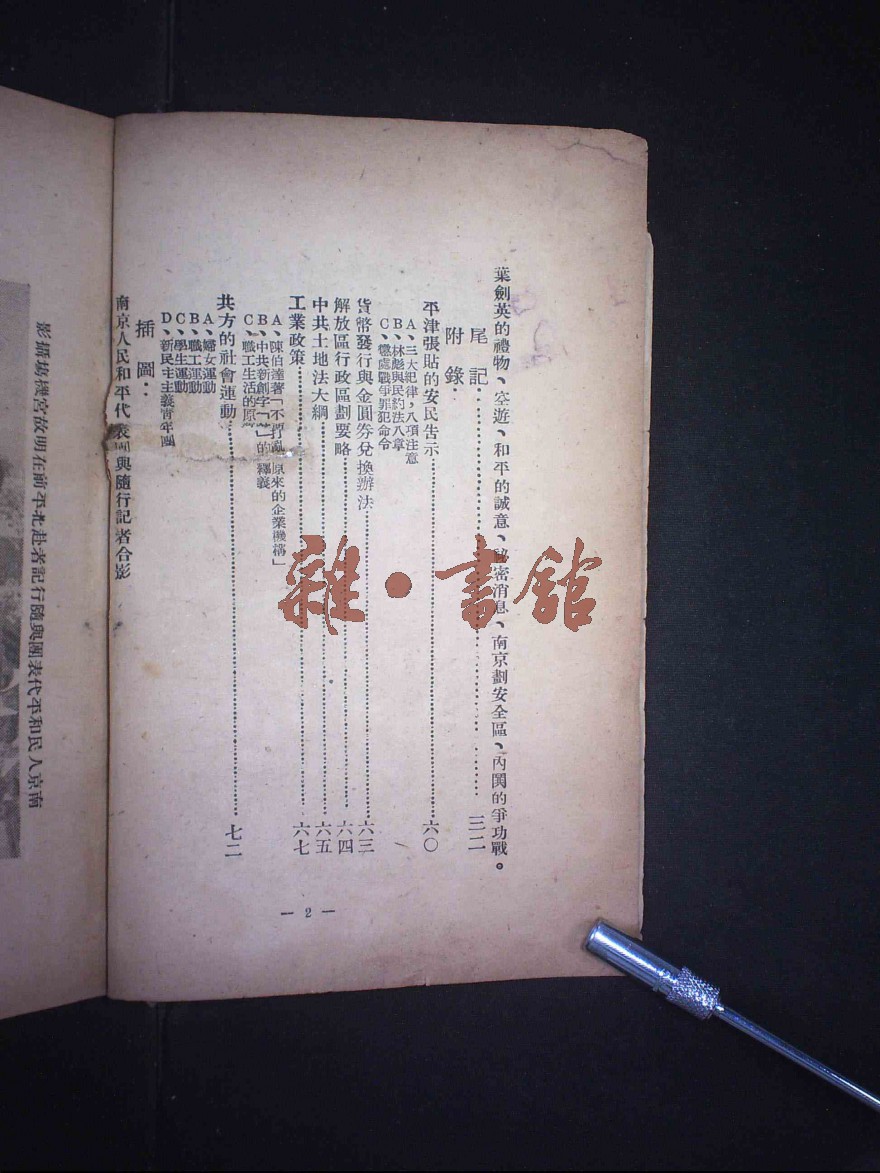 葉劍英的禮物、空遊、和平的誠意、秘密消息、南京劃安全區、內閣的爭功戰。
尾記⋯⋯三二
附錄:
平津張貼的安民告示⋯⋯六〇
A、三大紀律，八項注意
B、林彪與民約法八章
C、懲處戰爭罪犯命令
貨幣發行與金圓券兌換辦法⋯⋯六三
解放區行政區劃要略⋯⋯六四
中共土地法大綱⋯⋯六五
工業政策⋯⋯六七
A、陳伯達著「不打亂原來的企業機構」
B、中共新創字「」的釋義
C、職工生活的原
共方的社會運動⋯⋯七二
A、婦女運動
B、職工運動
C、學生運動
D、新民主主義靑年團
插圖:
南京人民和平代表團與隨行記者合影
— 2 —
南京人民和平代表團與隨行記者赴北平前在明故宮機場攝影
雜·書館